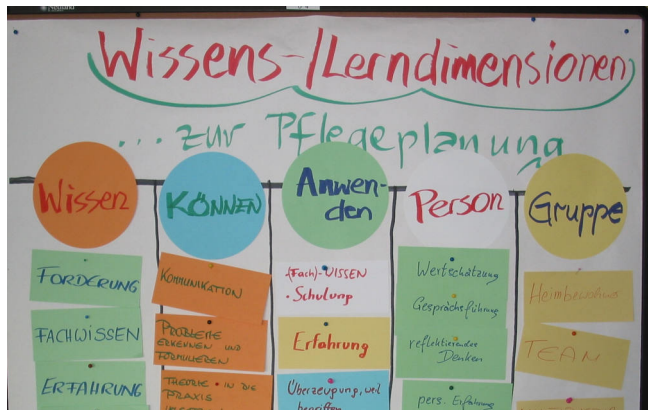 Wissens-/Lerndimensionen
... zur Pflegeplanung
Wissen
KÖNNEN
Anwen-
den
Person
Gruppe
FORDERUNG
FACHWISSEN
ERFAHRUNG
KOMMUNIKATION
PROBLEME
ERKENNEN UND
FORMULIEREN
THEORIE IN DIE
PRAXIS
(Fach)-WISSEN
• Schulung
Erfahrung
Überzeugung, weil
begriffen
Wertschätzung
Gesprächsführung
reflektierendes
Denken
pers. Erfahrung
Heimbewohner
TEAM